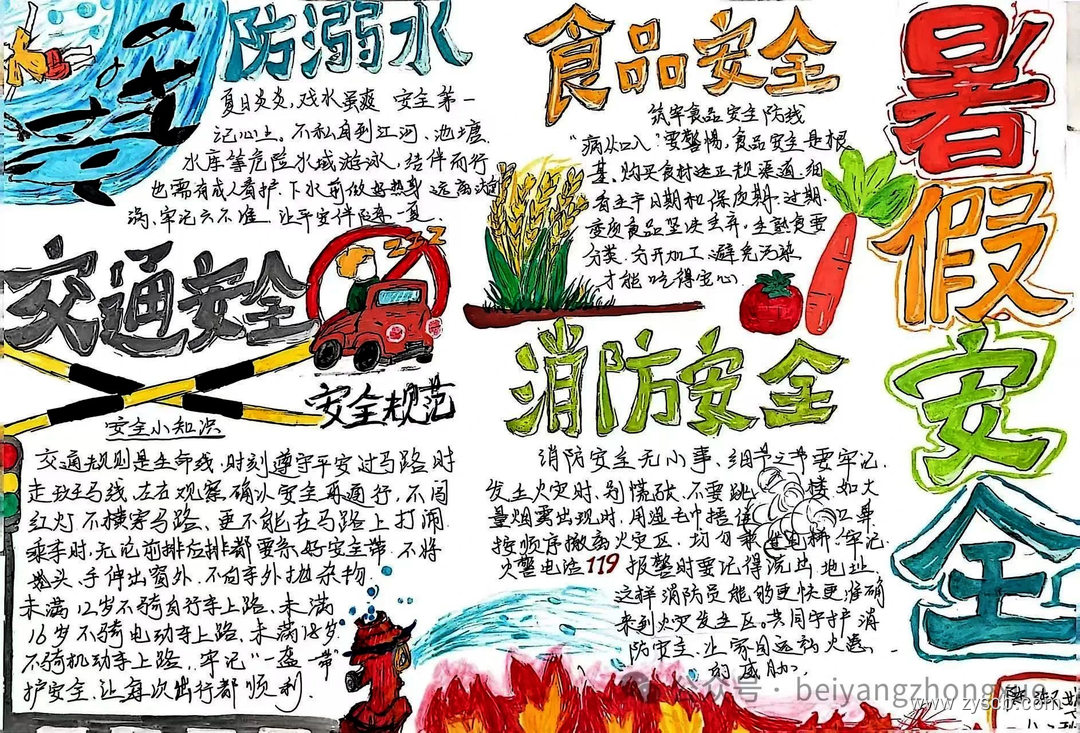 暑假安全
防溺水
夏日炎炎,戏水虽爽 安全第一
记心上。不私自到江河、池塘
水库等危险水域游泳,结伴而行
也需有成人看护.下水前做好热身 远离
牢记六不准 让平安伴随一夏.
食品安全
筑牢食品安全防线
"病从口入"要警惕,食品安全是根
基.购买食材选正规渠道.细
看生产日期和保质期.过期
变质食品坚决丢弃.生熟食要
分装、分开加工 避免污染
才能吃得安心.
交通安全
安全规范
安全小知识
交通规则是生命线,时刻遵守平安过马路时
走斑马线,左右观察确认安全再通行,不闯
红灯不横穿马路、更不能在马路上打闹
乘车时,无论前排后排都要系好安全带.不将
头、手伸出窗外.不向车外抛杂物.
未满12岁不骑自行车上路、未满
16岁不骑电动车上路、未满18岁
不骑机动车上路.牢记"一盔一带
护安全.让每次出行都顺利.
消防安全
消防安全无小事、细节之节要牢记.
发生火灾时、别慌张.不要跳楼 如大
量烟雾出现时.用湿毛巾捂住口鼻
按顺序撤离火灾区.切勿乘坐电梯!牢记
火警电话119 报警时要记得说出地址
这样消防员能够更快更准确
来到火灾发生区。共同守护消
防安全.让家园远祸火患
zZZ
公众号·beiyangzhongxue
www.zyscb.com